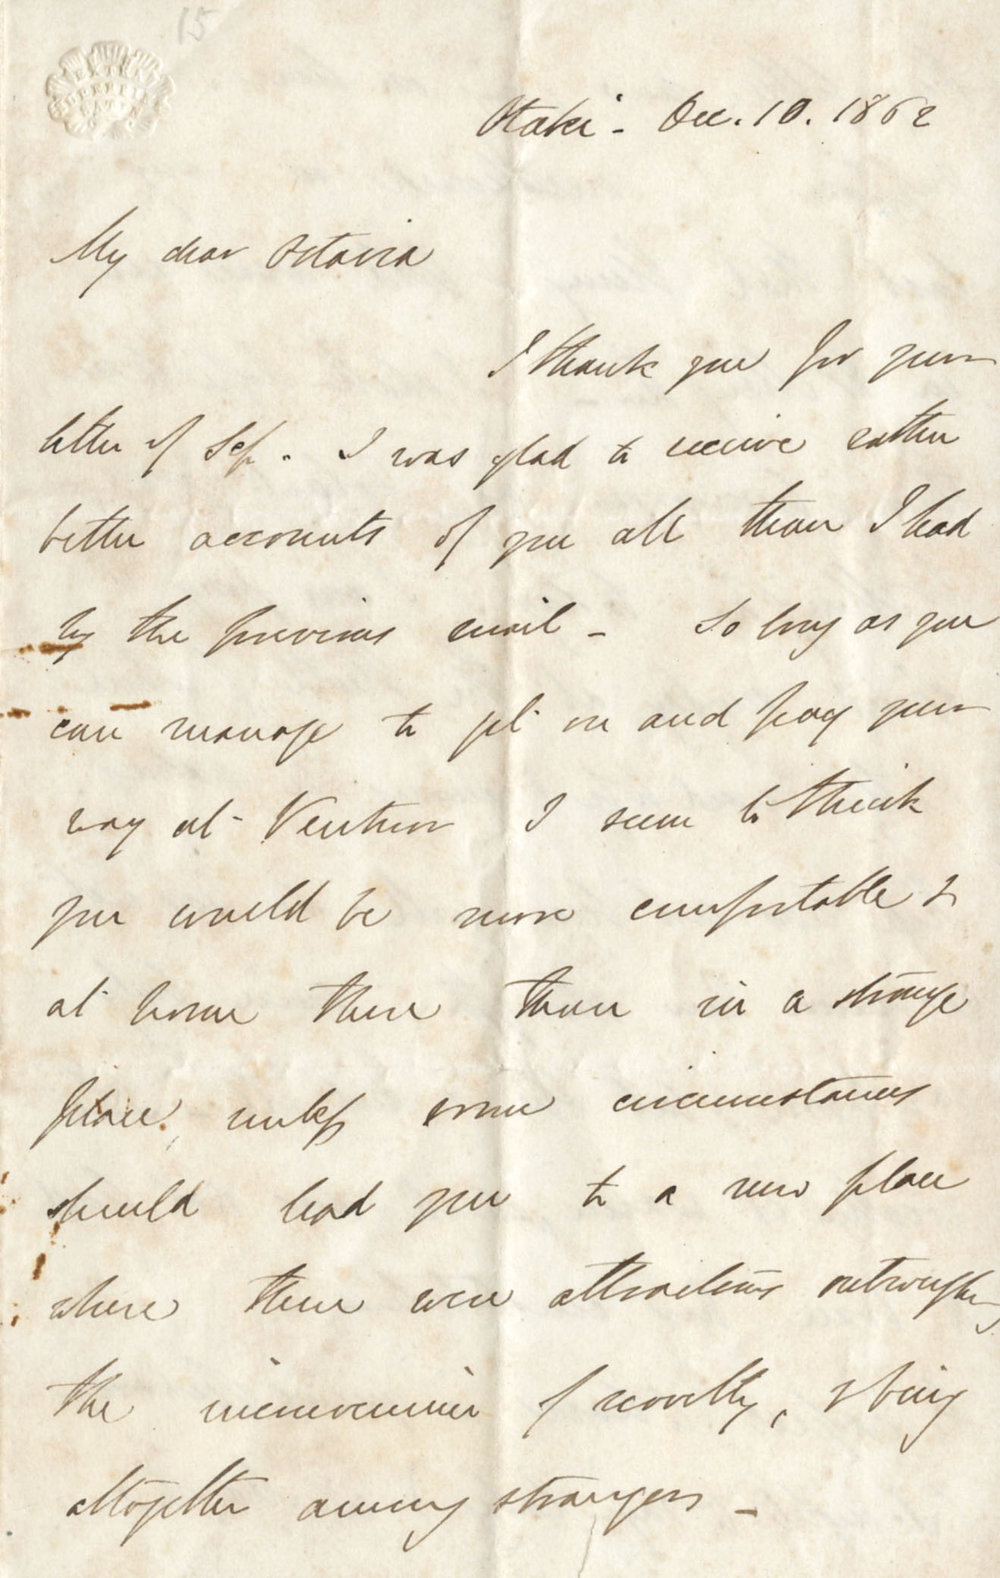 15
EXTRA
SUPERFINE
SATIN
Otaki - Dec. 10. 1862
My dear Octavia
I thank you for your
letter of Sep. I was glad to receive rather
better accounts of you all than I had
by the previous mail - So long as you
can manage to get on and pay your
way at Ventnor I seem to think
you would be more comfortable &
at home there than in a strange
place, unless some circumstances
should lead you to a new place
where there were attractions outweighing
the inconvenience of novelty, & being
altogether among strangers -